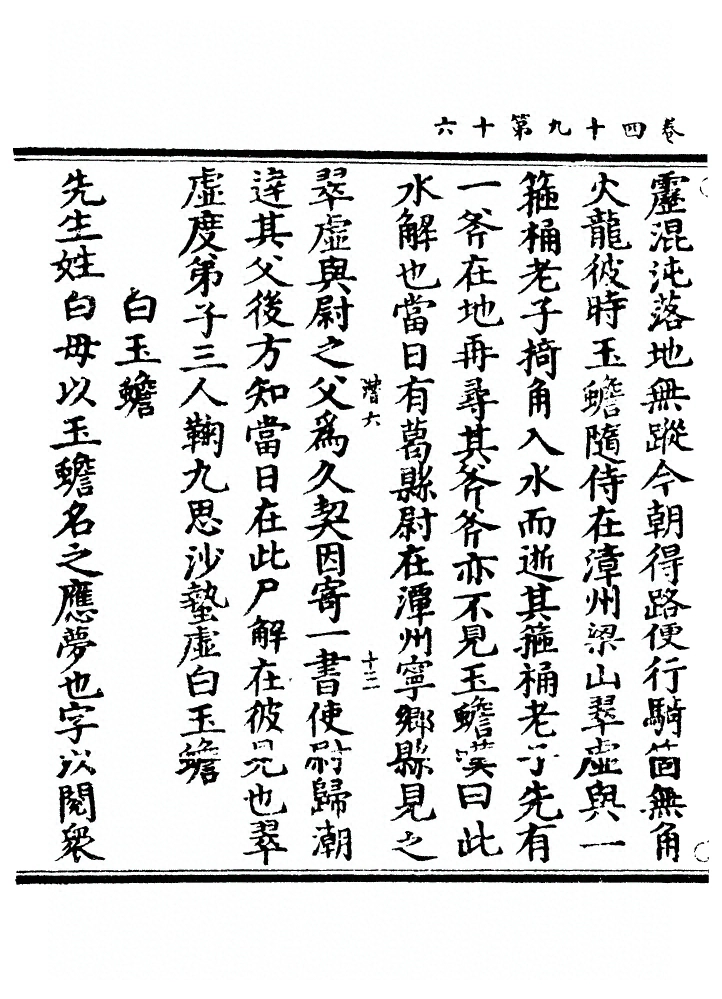 卷四十九第十六
靂混沌落地無蹤今朝得路便行騎箇無角
火龍彼時玉蟾隨侍在漳州梁山翠虛與一
箍桶老子掎角入水而逝其箍桶老子先有
一斧在地再尋其斧斧亦不見玉蟾嘆曰此
水解也當日有葛縣尉在潭州寧鄉縣見之
潛六 十三
翠虛與尉之父爲久契因寄一書使尉歸潮
達其父後方知當日在此尸解在彼見也翠
虛度弟子三人鞠九思沙蟄虛白玉蟾
白玉蟾
先生姓白母以玉蟾名之應夢也字以閱衆